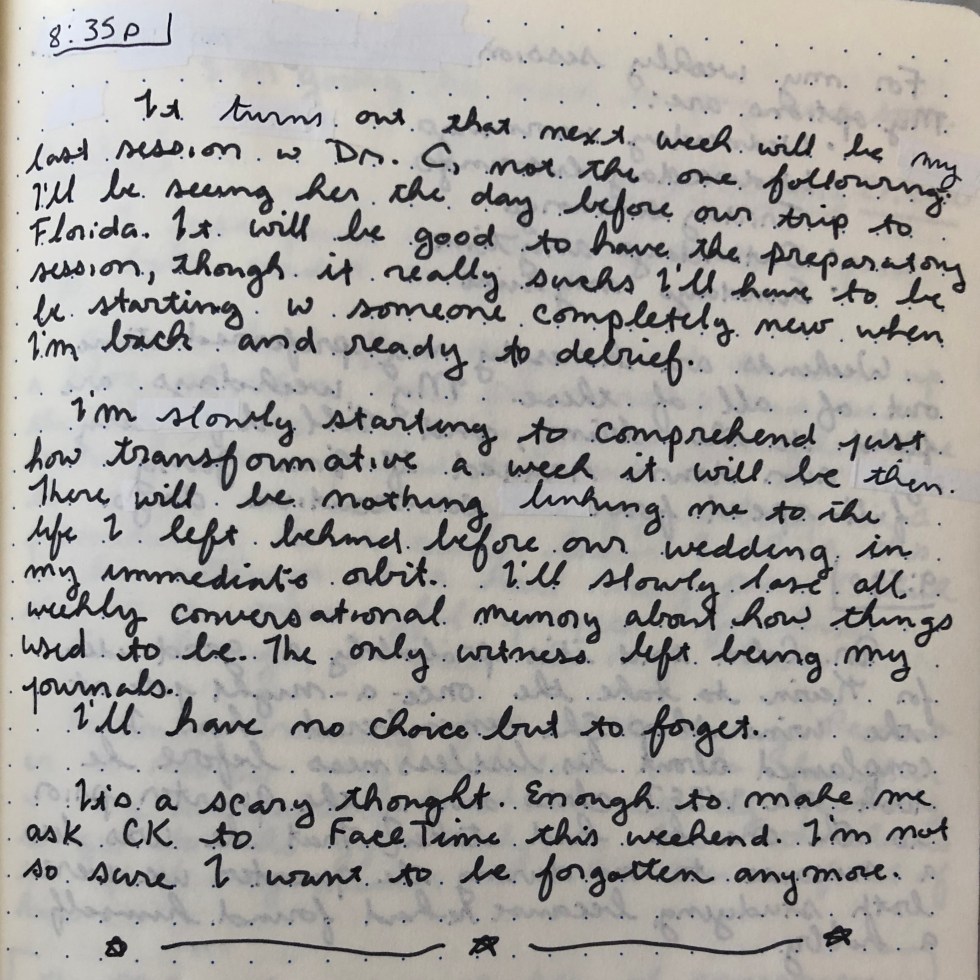 8:35p
It turns out that next week will be my
last session w Dr. C, not the one following.
I'll be seeing her the day before our trip to
Florida. It will be good to have the preparatory
session, though it really sucks I'll have to be
be starting w someone completely new when
I'm back and ready to debrief.
I'm slowly starting to comprehend just
how transformative a week it will be then.
There will be nothing linking me to the
life I left behind before our wedding in
my immediate orbit. I'll slowly lose all
weekly conversational memory about how things
used to be. The only witness left being my
journals.
I'll have no choice but to forget.
It's a scary thought. Enough to make me
ask CK to FaceTime this weekend. I'm not
so sure I want to be forgotten anymore.